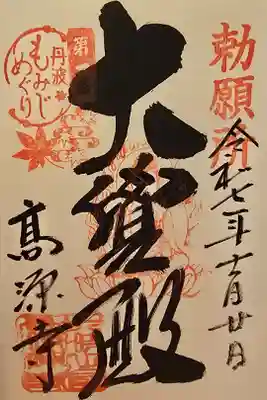 勅願所
令和七年十一月廿日
大殿
第
丹波
もみじ
めぐり
高源寺